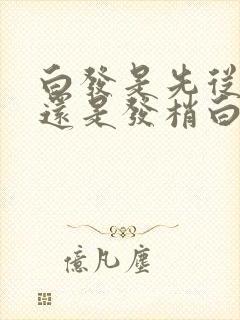 白發是先從
還是發梢白
億凡塵